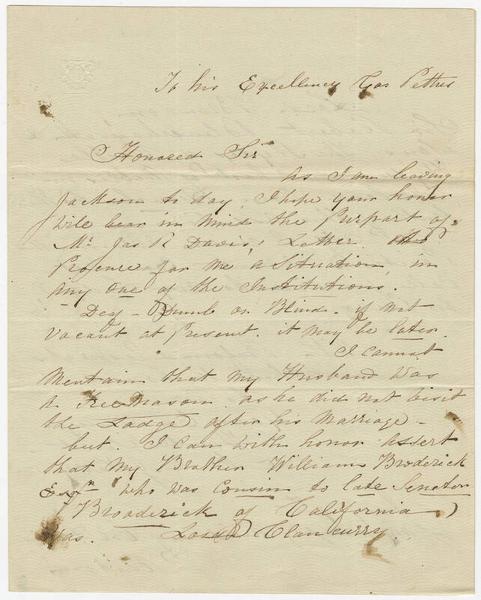 To his Excellency Gov Pettus
Honored Sir
As I am leaving
Jackson to day, I hope your honor
wile bear in mind the Purpart of
Mr Jas R Davis, Letter.
Procure for me a Situation, in
any one of the Institutions.
Deg - Dumb or Blind. if not
vacant at Present. it may be later.
I cannot
mentain that my Husband was
a Free mason as he did not visit
the Lodge after his Marriage -
but I can with honor assert
that my Brother William Broderick
Esqr who was Cousin to late Senator
Broaderick of California)
was. Lord Clancurry